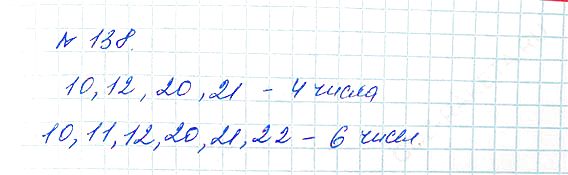 № 138.
10, 12, 20, 21 – 4 числа
10, 11, 12, 20, 21, 22 – 6 чисел.